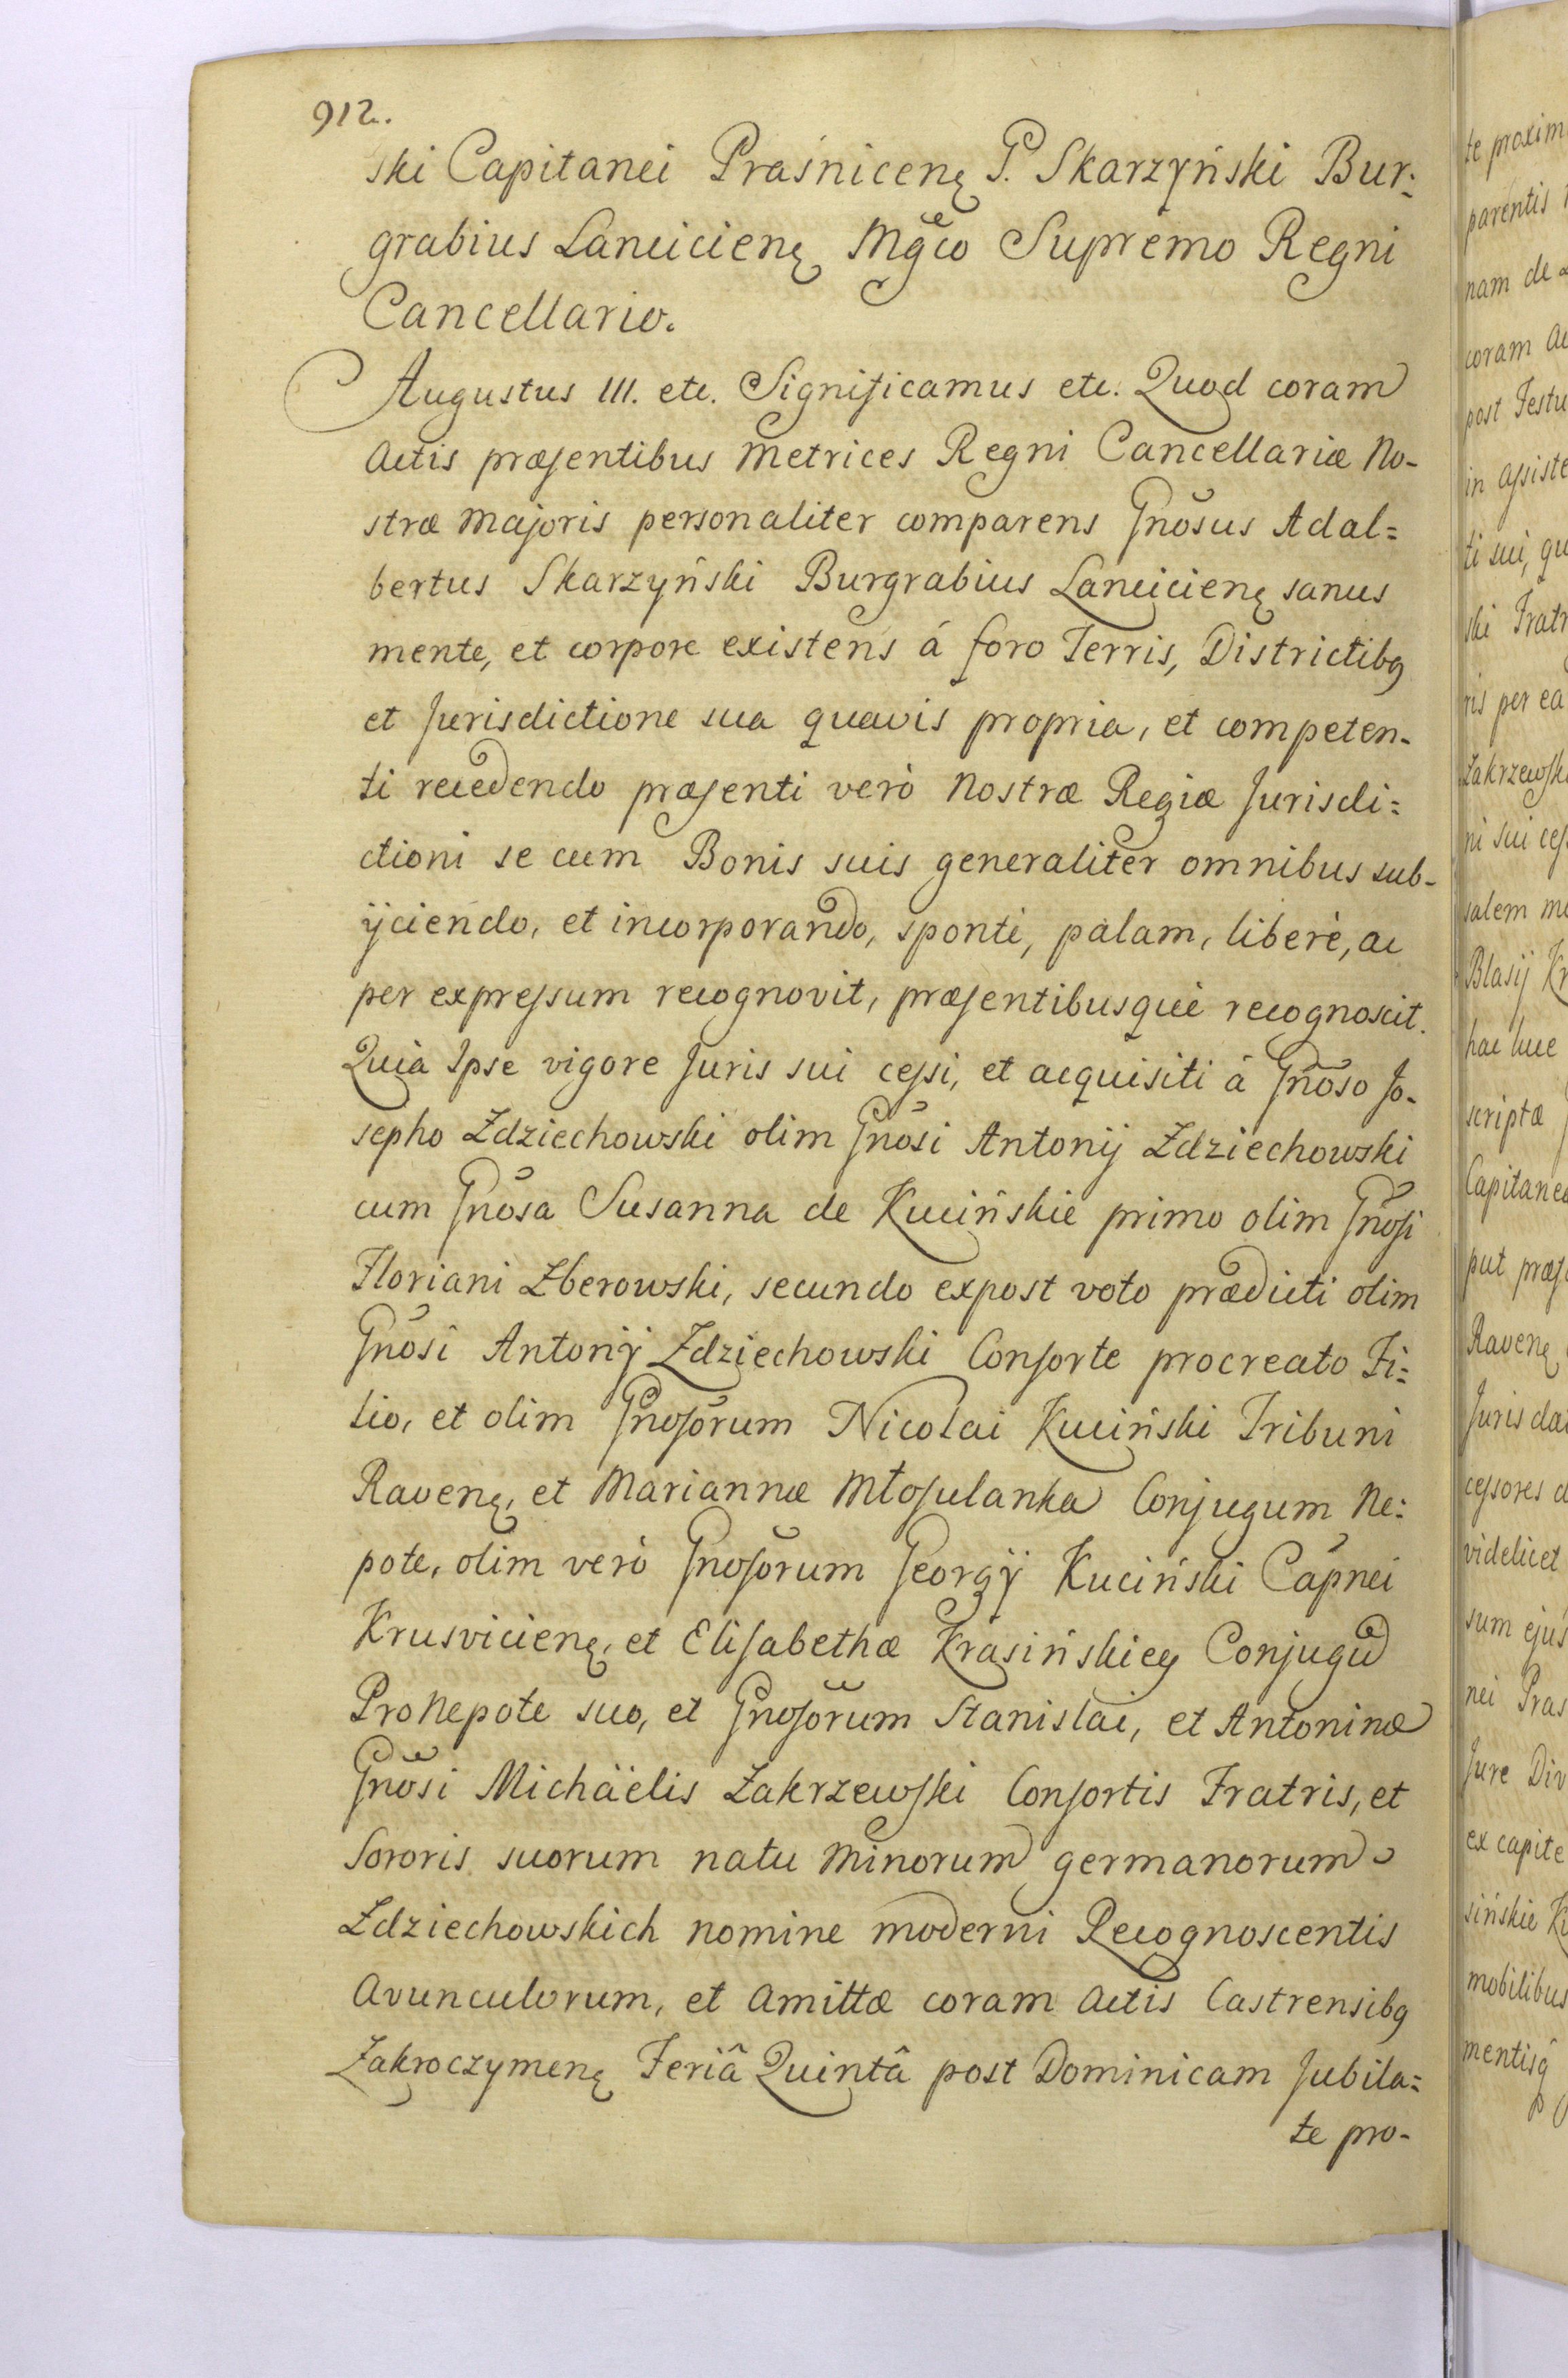 912.
ski Capitanei Praśnicenę P. Skarzyński Bur:
grabius Lancicienę Mgco Supremo Regni
Cancellario.
Augustus III. etc. Significamus etc. Quod coram
Actis præsentibus Metrices Regni Cancellariæ No-
stræ Majoris personaliter comparens Gnõsus Adal=
bertus Skarzyński Burgrabius Lancicienę sanus
mente, et corpore existens á foro Terris, Districtibq
et Jurisdictione sua quavis propria, et competen-
ti recedendo præsenti verò Nostræ Regiæ Jurisdi=
ctioni se cum Bonis suis generaliter omnibus sub-
ijciendo, et incorporando, spontè, palam, liberè, ac
per expressum recognovit, præsentibusquè recognoscit.
Quia Ipse vigore Juris sui cessi, et acquisiti á Gnõso Jo-
sepho Zdziechowski olim Gnõsi Antonij Zdziechowski
cum Gnõsa Susanna de Kucińskie primo olim Gnõsi
Floriani Zberowski, secundo expost voto prædicti olim
Gnõsi Antonij Zdziechowski Consorte procreato Fi=
lio, et olim Gnosõrum Nicolai Kuciński Tribuni
Ravenę, et Mariannæ Młosulanka Conjugum Ne:
pote, olim verò Gnosõrum Georgij Kuciński Capnei
Krusvicienę, et Elisabethæ Krasińskiey Conjugũ
ProNepote suo, et Gnosõrum Stanislai, et Antoninæ
Gnõsi Michäelis Zakrzewski Consortis Fratris, et
Sororis suorum natu Minorum germanorum
Zdziechowskich nomine moderni Recognoscentis
Avunculorum, et Amittæ coram Actis Castrensibq
Zakroczymenę Feriâ Quintâ post Dominicam Jubila=
te pro-
te proxim
parentis
nam de
coram Ac
post Festu
in assiste
ti sui, qu
ski Fratr
ris per ea
Zakrzewski
ni sui ces
salem
Blasij Kr
hac luce
scriptæ
Capitanea
put præs
Ravenę
Juris
cessores
videlicet
sum ejus
nei Pras
Jure Div
ex capite
sińskie
mobilibus
mentisq